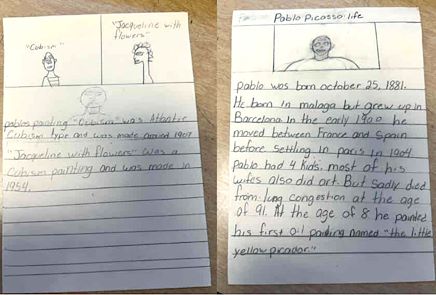 "Cubism"
"Jacqueline with
flowers"
pablos painting "Cubism" was Atlantic
Cubism type and was made around 1907
"Jacqueline with flowers" was a
Cubism painting and was made in
1954.
Pablo Picasso life
pablo was born october 25, 1881.
He born in malaga but grew up in
Barcelona. In the early 1900 he
moved between France and Spain
before settling in paris in 1904
pablo had 4 kids. most of his
wifes also did art. But sadly died
from lung congestion at the age
of 91. At the age of 8 he painted
his first oil painting named "the little
yellow picador."